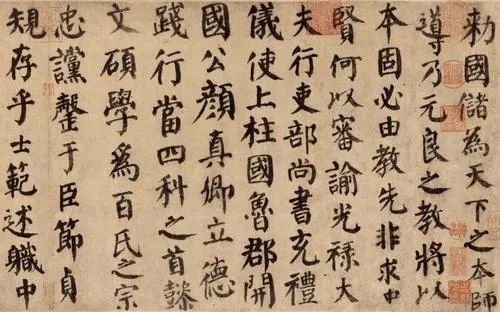 勅國儲為天下之本師
導乃元良之教將以
本固必由教先非求中
賢何以審諭光祿大
夫行吏部尚書充禮
儀使上柱國魯郡開
國公顏真卿立德
踐行當四科之首懿
文碩學為百氏之宗
忠讜罄于臣節貞
規存乎士範述職中